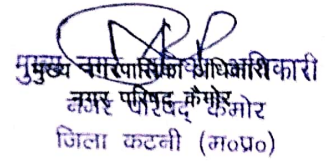 मुख्य नगरपालिका अधिकारी
नगर परिषद् कैमोर
जिला कटनी (म०प्र०)